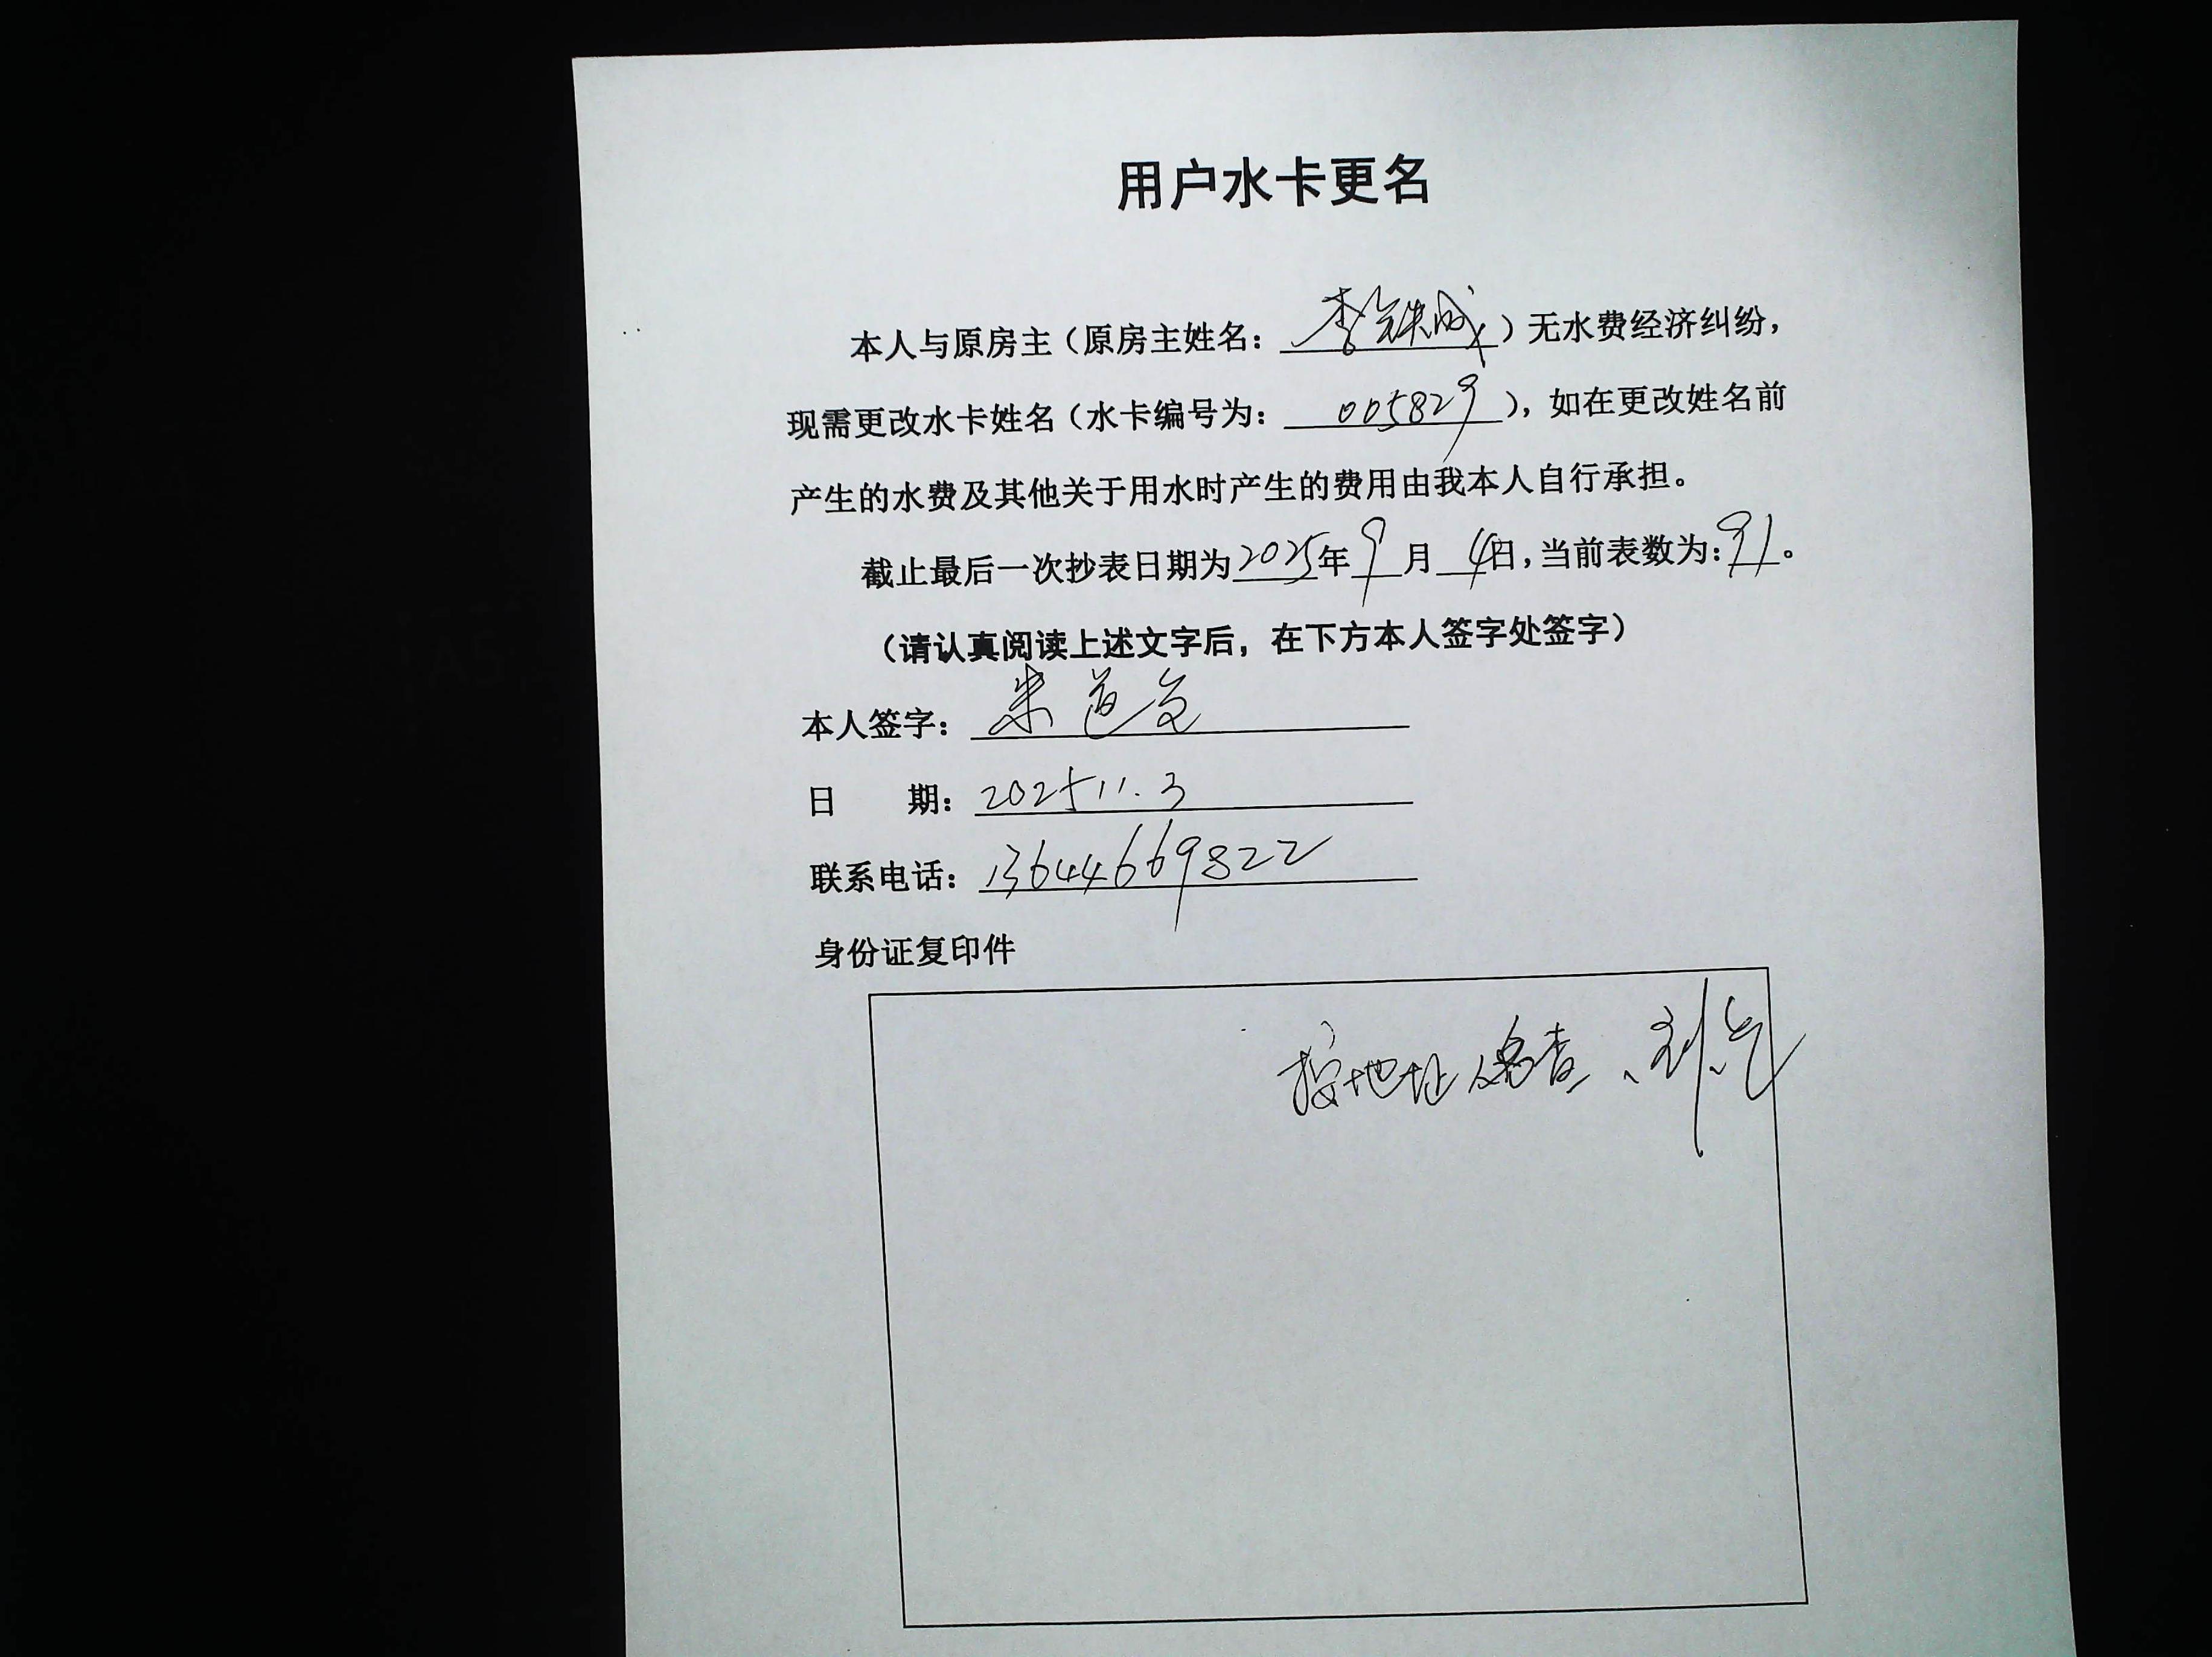 用户水卡更名
本人与原房主（原房主姓名：李铁成）无水费经济纠纷，
现需更改水卡姓名（水卡编号为：005829），如在更改姓名前
产生的水费及其他关于用水时产生的费用由我本人自行承担。
截止最后一次抄表日期为2025年9月4日，当前表数为：91。
（请认真阅读上述文字后，在下方本人签字处签字）
本人签字：朱道
日期：2025 11.3
联系电话：13644669822
身份证复印件
按地址人名查、